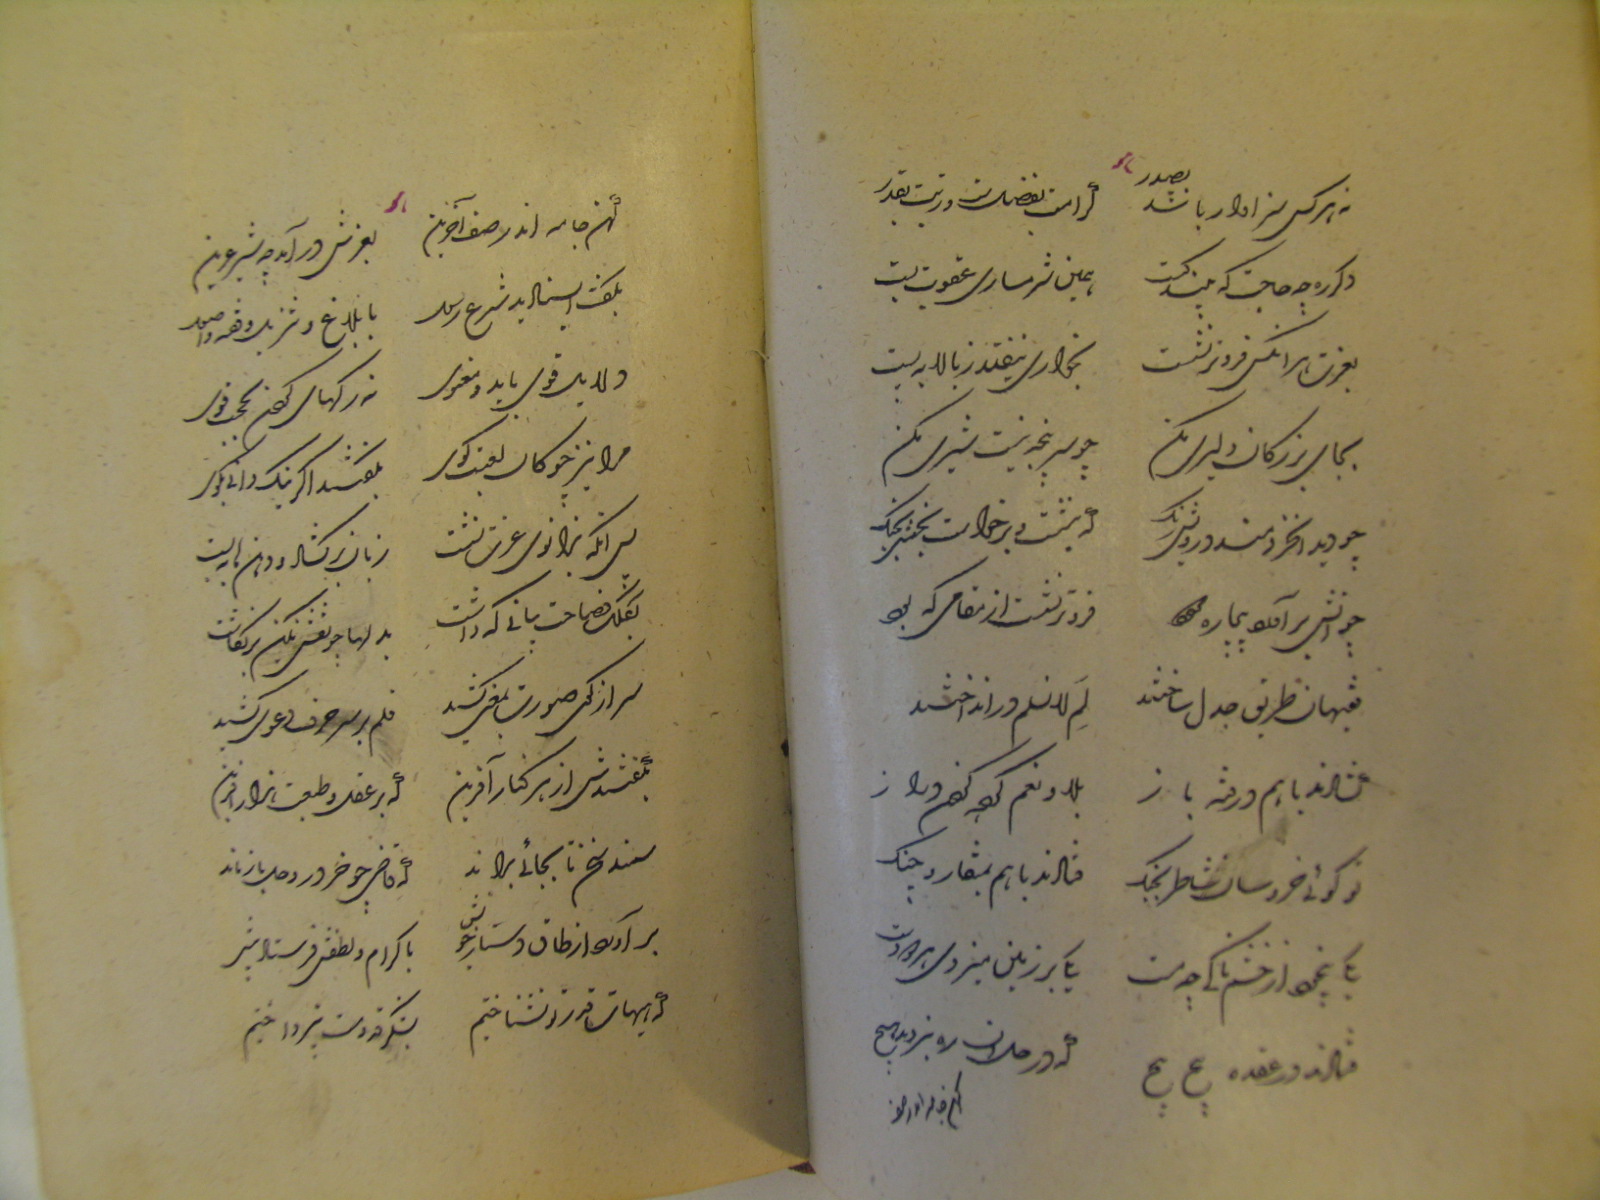 نه هر کس سزاوار باشد بصدر کرامت بفضلست و رتبت بقدر
دگر ره چه حاجت که بیند کست همین شرمساری عقوبت بست
بعزت هر انکس فروتر نشست بخواری نیفتد ز بالا به پست
بجای بزرگان دلیری مکن چو سر پنجه نیست شیری مکن
چو دید انخردمند درویش رنگ که بنشست و برخواست بختش بجنگ
چو آتش برآورد بیچاره دود فروتر نشست از مقامی که بود
فقیهان طریق جدل ساختند لِم لا نسلم در انداختند
گشادند باهم در فتنه باز بلا و نعم کرده گردن دراز
تو گوئی خروسان شاطر بجنگ فتادند باهم بمنقار و چنگ
یکی بیخود از خشم ناکی چو مست یکی بر زمین میزدی هر دو دست
فتادند در عقده پیچ پیچ که در حل ان ره نبردند هیچ
کهن جامه اندر صف
کهن جامه اندر صف آخرین بغرش در آمد چو شیر عرین
بگفت ای صنادید شرع رسول بابلاغ و تنزیل و فقه و اصول
دلایل قوی باید و معنوی نه رگهای گردن بحجت قوی
مرا نیز چوگان لعبست و گوی بگفتند اگر نیک دانی بگوی
پس انگه بزانوی عزت نشست زبان برگشاد و دهنها ببست
بکلک فصاحت بیانی که داشت بدلها چو نقش نگین برنگاشت
سر از کوی صورت بمعنی کشید قلم بر سر حرف دعوی کشید
بگفتندش از هر کنار آفرین که بر عقل و طبعت هزار آفرین
سمند سخن تا بجائی براند که قاضی چو خر در وحل باز ماند
برآمد از طاق و دستار خویش باکرام و لطفش فرستاد پیش
که هیهات قدر تو نشناختیم بشکر قدومت نپرداختیم